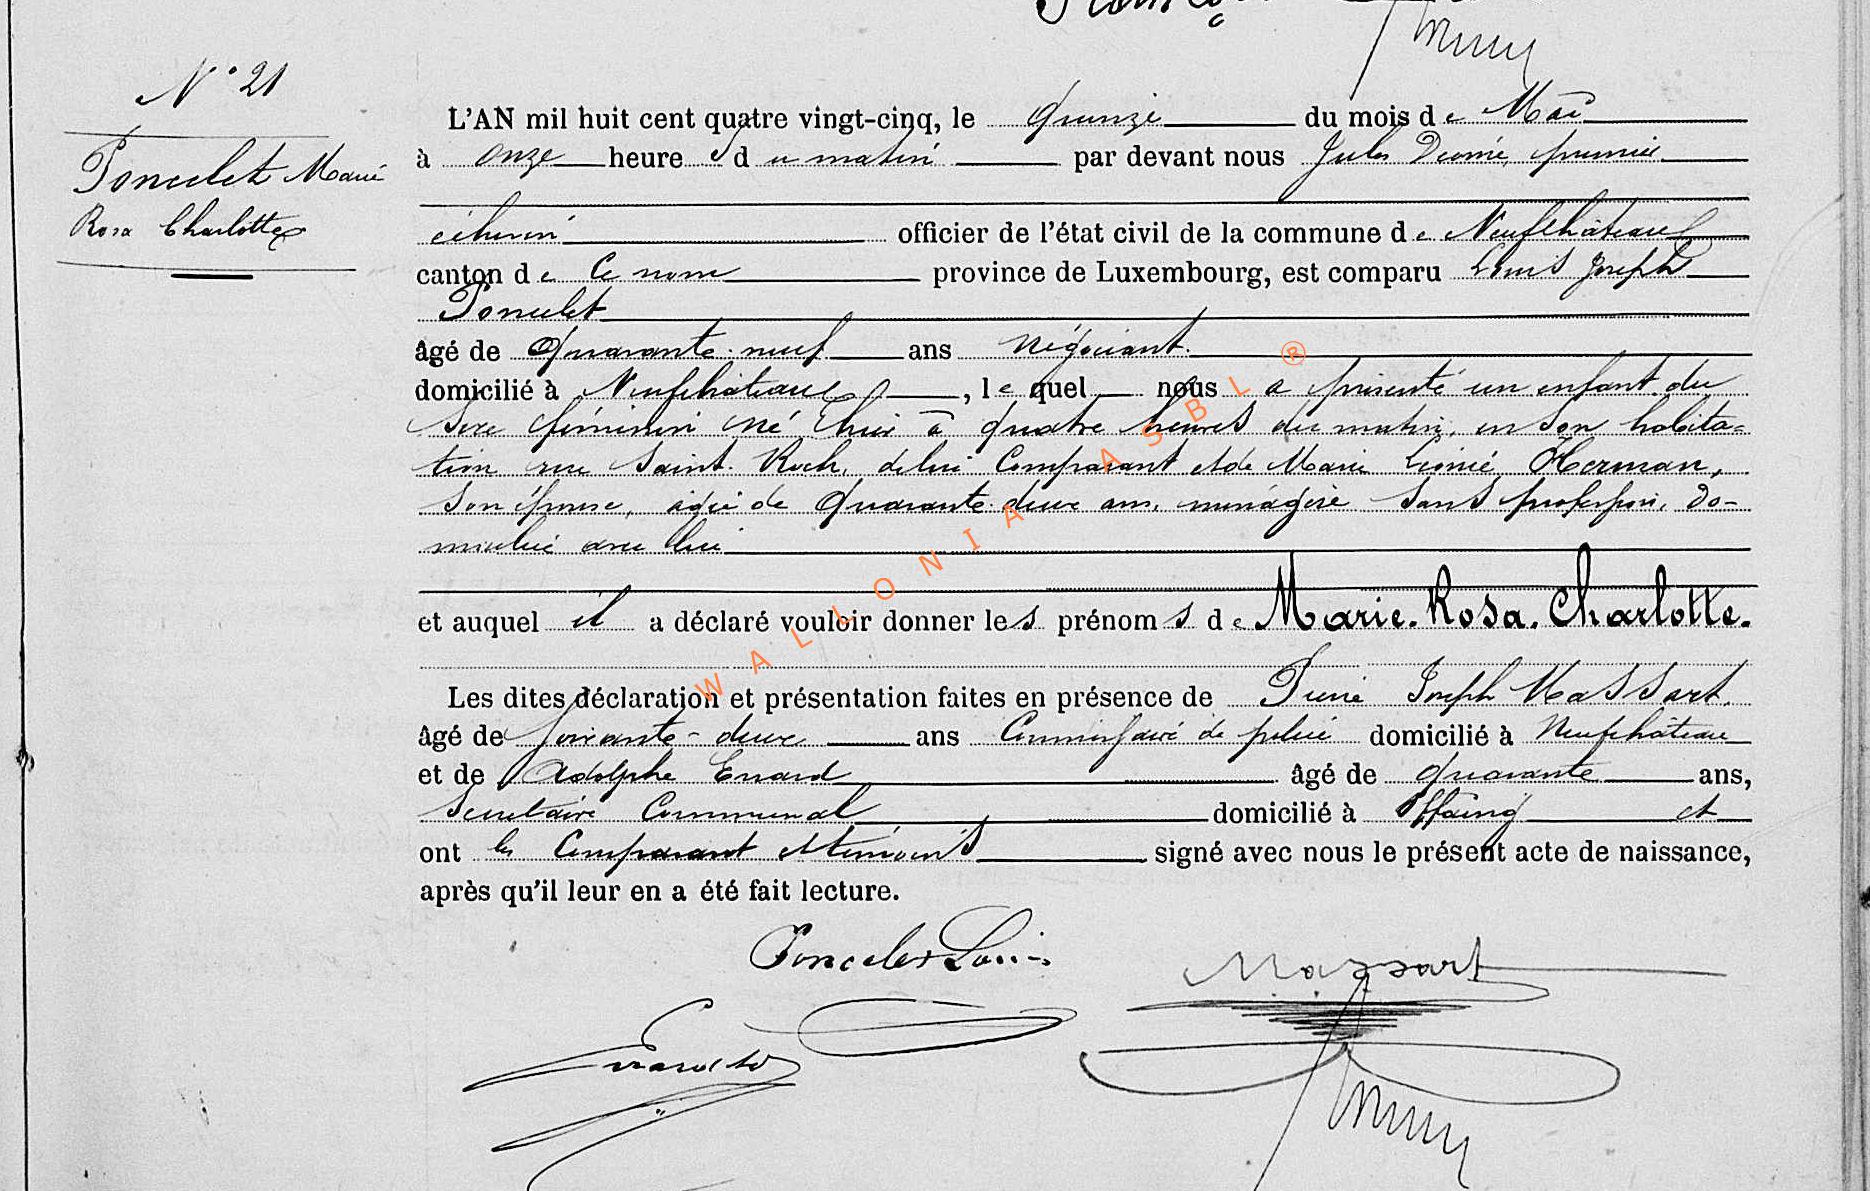 N° 21
Poncelet Marie
Rosa Charlotte
L'AN mil huit cent quatre vingt-cinq, le quinze du mois de Mai
à onze heures du matin par devant nous Jules premier
échevin officier de l'état civil de la commune de Neufchâteau
canton de Ce nom province de Luxembourg, est comparu Louis Joseph
Poncelet
âgé de Quarante-neuf ans négociant.
domicilié à Neufchâteau, lequel nous a présenté un enfant du
sexe féminin né hier à quatre heures du matin, en son habita=
tion rue Saint-Roch, de lui Comparant et de Marie Léonie Herman,
son épouse, âgée de Quarante-deux ans, ménagère sans profession, do-
miciliée avec lui
et auquel il a déclaré vouloir donner les prénoms de Marie-Rosa-Charlotte.
Les dites déclaration et présentation faites en présence de Pierre Joseph Massart,
âgé de soixante-deux ans Commissaire de police domicilié à Neufchâteau
et de Adolphe Evrard âgé de quarante ans,
Secrétaire Communal domicilié à Offaing et
ont les Comparant et témoins signé avec nous le présent acte de naissance,
après qu'il leur en a été fait lecture.
Poncelet Louis
Massart
WALLONIA ASBL ®